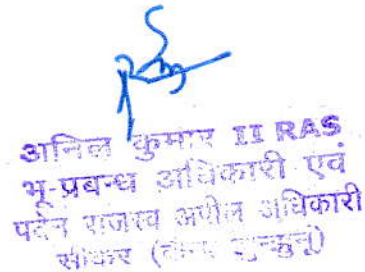 अनिल कुमार II RAS
भू-प्रबन्ध अधिकारी एवं
पदेन राजस्व अपील अधिकारी
सीकर (